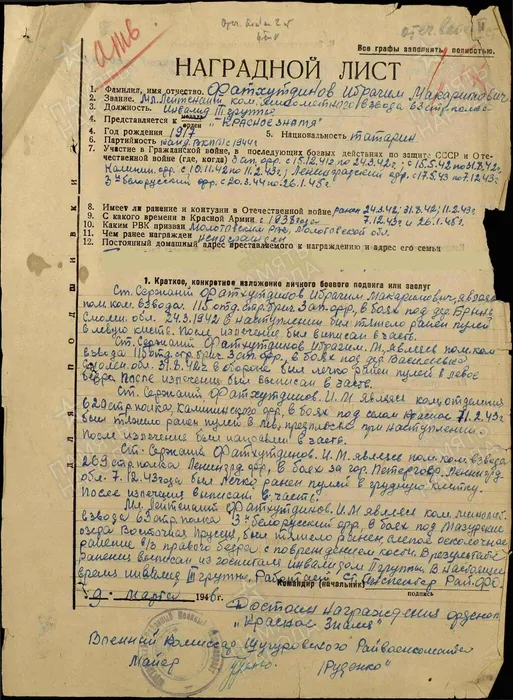 Отеч. войны 2 ст
отеч. вой II
Все графы заполнять полностью.
НАГРАДНОЙ ЛИСТ
1. Фамилия, имя отчество Фатхутдинов Ибрагим Макаримович
2. Звание Мл. Лейтенант ком. минометного взвода 63 стр. полка
3. Должность Инвалид III группы
4. Представляется к орден „Красное знамя"
4. Год рождения 1917 5. Национальность татарин
6. Партийность канд. ВКП(б) с 1944 г
7. Участие в Гражданской войне, в последующих боевых действиях по защите СССР и Оте-
чественной войне (где, когда) Зап. фр. с 15.12.41г по 24.3.42г, с 15.5.42 по 31.8.42г
Калинин. фр. с 10.11.42 по 11.2.43г, Ленинградский фр. с 17.5.43 по 7.12.43г
3й Белорусский фр. с 20.3.44 по 26.1.45г
8. Имеет ли ранения и контузии в Отечественной войне ранен 24.3.42; 31.8.42; 11.2.43г
9. С какого времени в Красной Армии с 1938 года 7.12.43г и 26.1.45г
10. Каким РВК призван Молотовский РВК, Молотовской обл.
11. Чем ранее награжден не награжден
12. Постоянный домашний адрес представляемого к награждению и адрес его семьи
1. Краткое, конкретное изложение личного боевого подвига или заслуг
Ст. Сержант Фатхутдинов Ибрагим Макаримович, являясь
пом. ком. взвода 115 отд. стр. бриг. Зап. фр, в боях под дер. Брынь
Смолен. обл. 24.3.1942 в наступлении был тяжело ранен пулей
в левую кисть. После излечения был выписан в часть.
Ст. Сержант Фатхутдинов Ибрагим. М. являясь пом. ком
взвода 115 отд. стр. бриг. Зап. фр, в боях под дер.
Смолен. обл. 31.8.42г в обороне был легко ранен пулей в левое
бедро. После излечения был выписан в часть.
Ст. Сержант Фатхутдинов. И. М являясь ком. отделения
629 стр. полка Калининского фр, в боях под селом Красное 11.2.43г
был тяжело ранен пулей в предплечье при наступлении.
После излечения был направлен в часть.
Ст. Сержант Фатхутдинов. И. М. являясь пом. ком взвода
269 стр. полка Ленинград. фр, в боях за гор. Петергоф. Ленингр.
обл. 7.12.43 года был легко ранен пулей в грудную клетку.
После излечения выписан в часть.
Мл. Лейтенант Фатхутдинов. И. М являясь ком. миномет.
взвода 63 стр. полка 3й Белорусский фр, в боях под Мазурские
озера Восточная Пруссия, был тяжело ранен, слепое осколочное
ранение в/з правого бедра с повреждением кости. В результате
ранения выписан из госпиталя инвалидом III группы. В настоящее
время инвалид III группы, Работает Ст. Инспектор Рай. ФО.
Командир (начальник)
подпись
„9" марта 1946 г.
Достоин награждения орденом
„Красное Знамя"
Военный Комиссар Щучуровского Райвоенкомата
Майор
/Руденко/